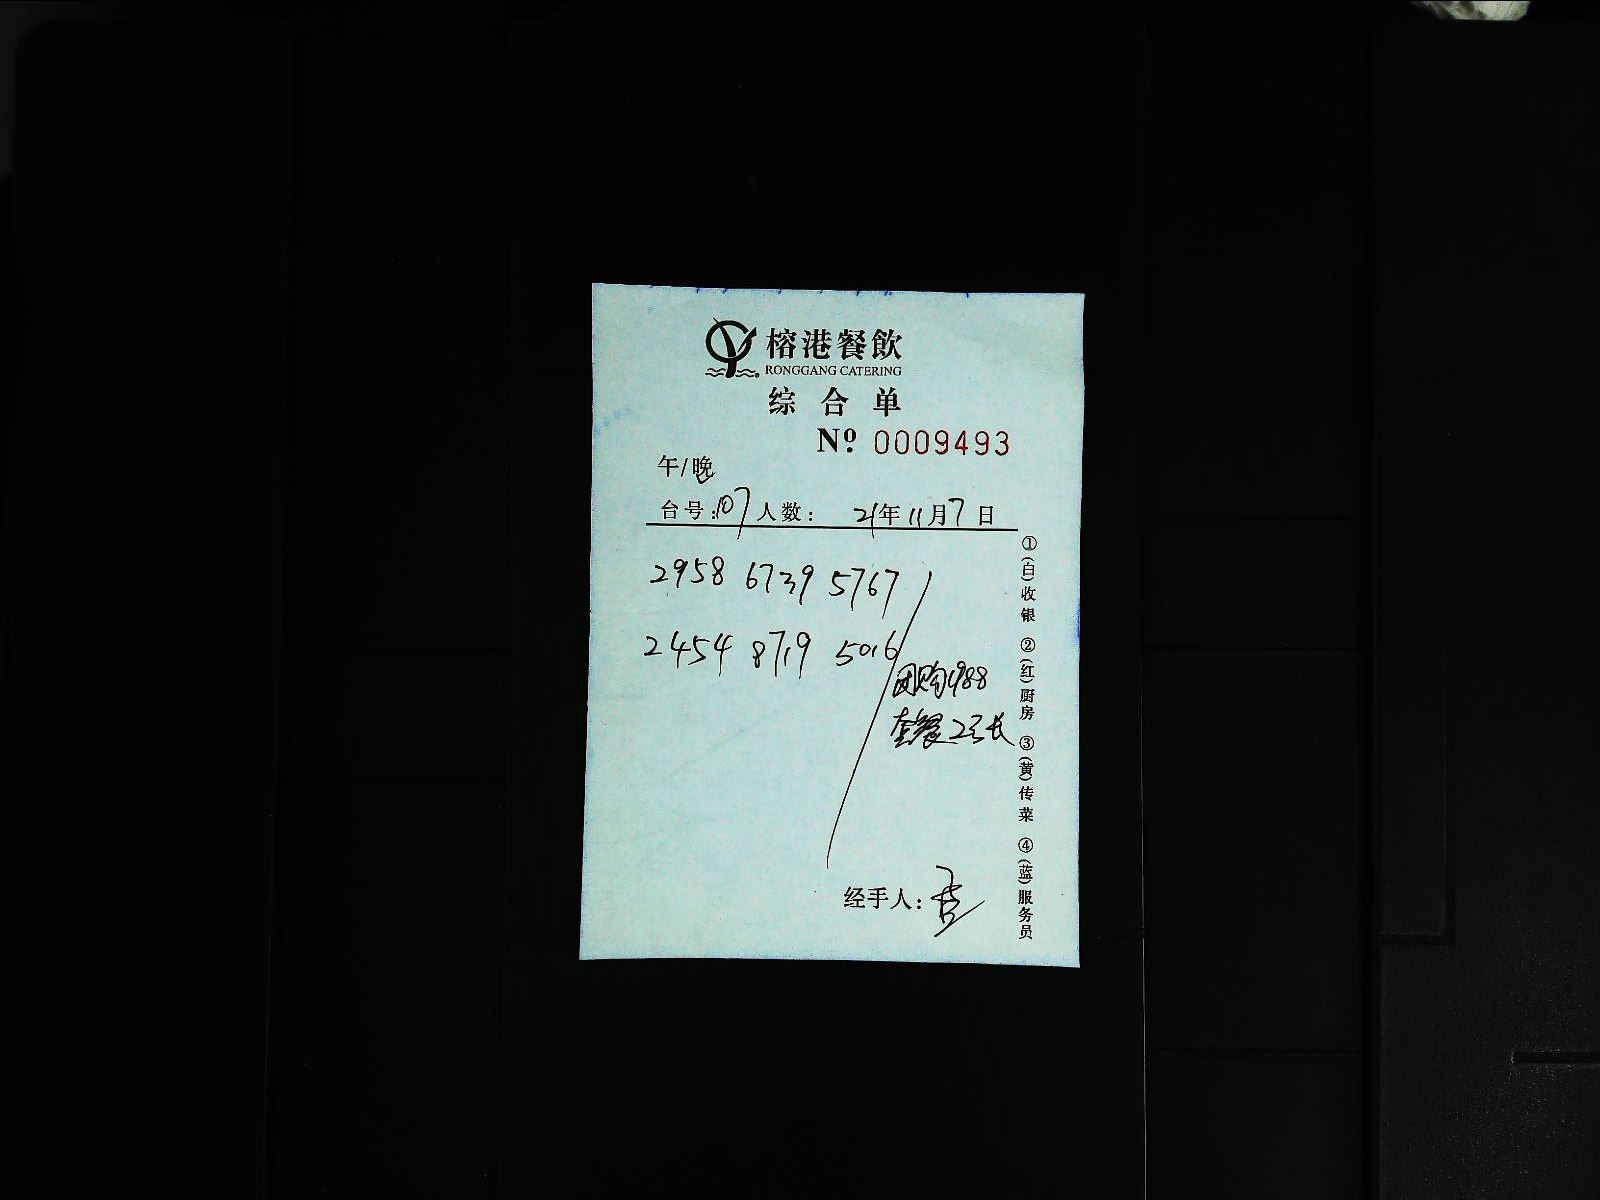 榕港餐飲
RONGGANG CATERING
综合单
Nº 0009493
午/晚
台号:107 人数: 21年11月7日
2958 6739 5767
2454 8719 5016
团购1988
套餐2张
经手人:
①(白)收银 ②(红)厨房 ③(黄)传菜 ④(蓝)服务员